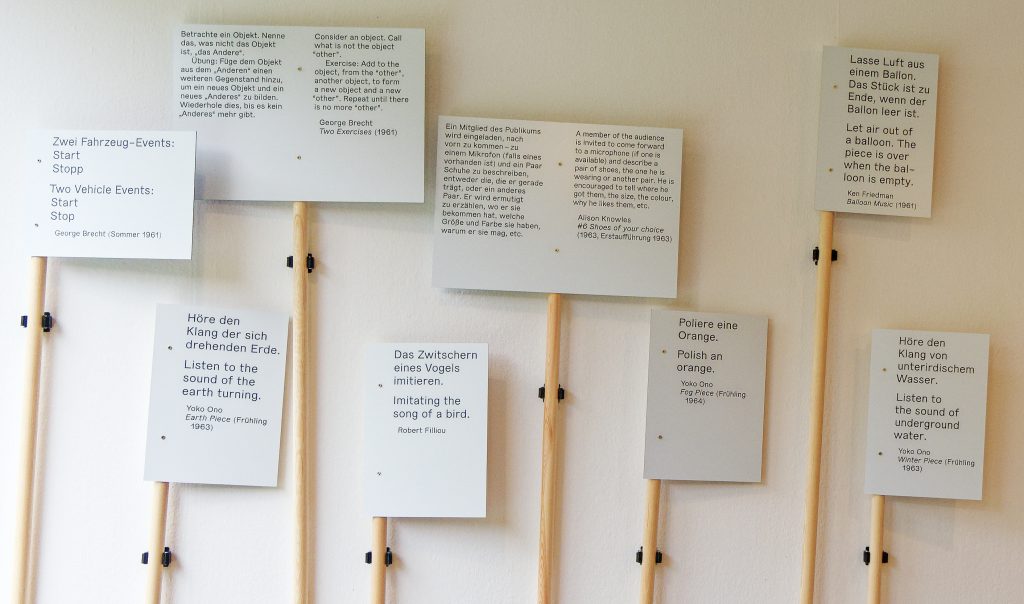 Betrachte ein Objekt. Nenne
das, was nicht das Objekt
ist, „das Andere“.
Übung: Füge dem Objekt
aus dem „Anderen“ einen
weiteren Gegenstand hinzu,
um ein neues Objekt und ein
neues „Anderes“ zu bilden.
Wiederhole dies, bis es kein
„Anderes“ mehr gibt.
Consider an object. Call
what is not the object
“other”.
Exercise: Add to the
object, from the “other”,
another object, to form
a new object and a new
“other”. Repeat until there
is no more “other”.
George Brecht
Two Exercises (1961)
Zwei Fahrzeug-Events:
Start
Stopp
Two Vehicle Events:
Start
Stop
George Brecht (Sommer 1961)
Ein Mitglied des Publikums
wird eingeladen, nach
vorn zu kommen – zu
einem Mikrofon (falls eines
vorhanden ist) und ein Paar
Schuhe zu beschreiben,
entweder die, die er gerade
trägt, oder ein anderes
Paar. Er wird ermutigt
zu erzählen, wo er sie
bekommen hat, welche
Größe und Farbe sie haben,
warum er sie mag, etc.
A member of the audience
is invited to come forward
to a microphone (if one is
available) and describe a
pair of shoes, the one he is
wearing or another pair. He is
encouraged to tell where he
got them, the size, the colour,
why he likes them, etc.
Alison Knowles
#6 Shoes of your choice
(1963, Erstaufführung 1963)
Lasse Luft aus
einem Ballon.
Das Stück ist zu
Ende, wenn der
Ballon leer ist.
Let air out of
a balloon. The
piece is over
when the bal-
loon is empty.
Ken Friedman
Balloon Music (1961)
Höre den
Klang der sich
drehenden Erde.
Listen to the
sound of the
earth turning.
Yoko Ono
Earth Piece (Frühling
1963)
Das Zwitschern
eines Vogels
imitieren.
Imitating the
song of a bird.
Robert Filliou
Poliere eine
Orange.
Polish an
orange.
Yoko Ono
Fog Piece (Frühling
1964)
Höre den
Klang von
unterirdischem
Wasser.
Listen to
the sound of
underground
water.
Yoko Ono
Winter Piece (Frühling
1963)